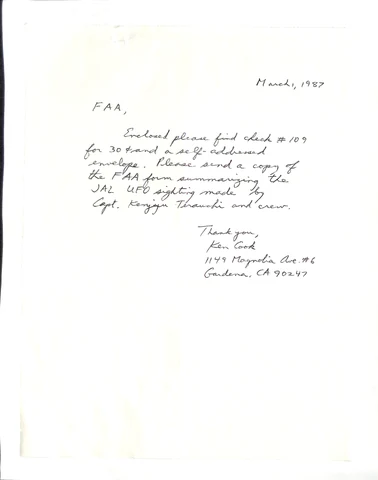 March 1, 1987
FAA,
Enclosed please find check # 109
for 30¢ and a self-addressed
envelope. Please send a copy of
the FAA form summarizing the
JAL UFO sighting made by
Capt. Kenjyu Terauchi and crew.
Thank you,
Ken Cook
1149 Magnolia Ave. #6
Gardena, CA 90247